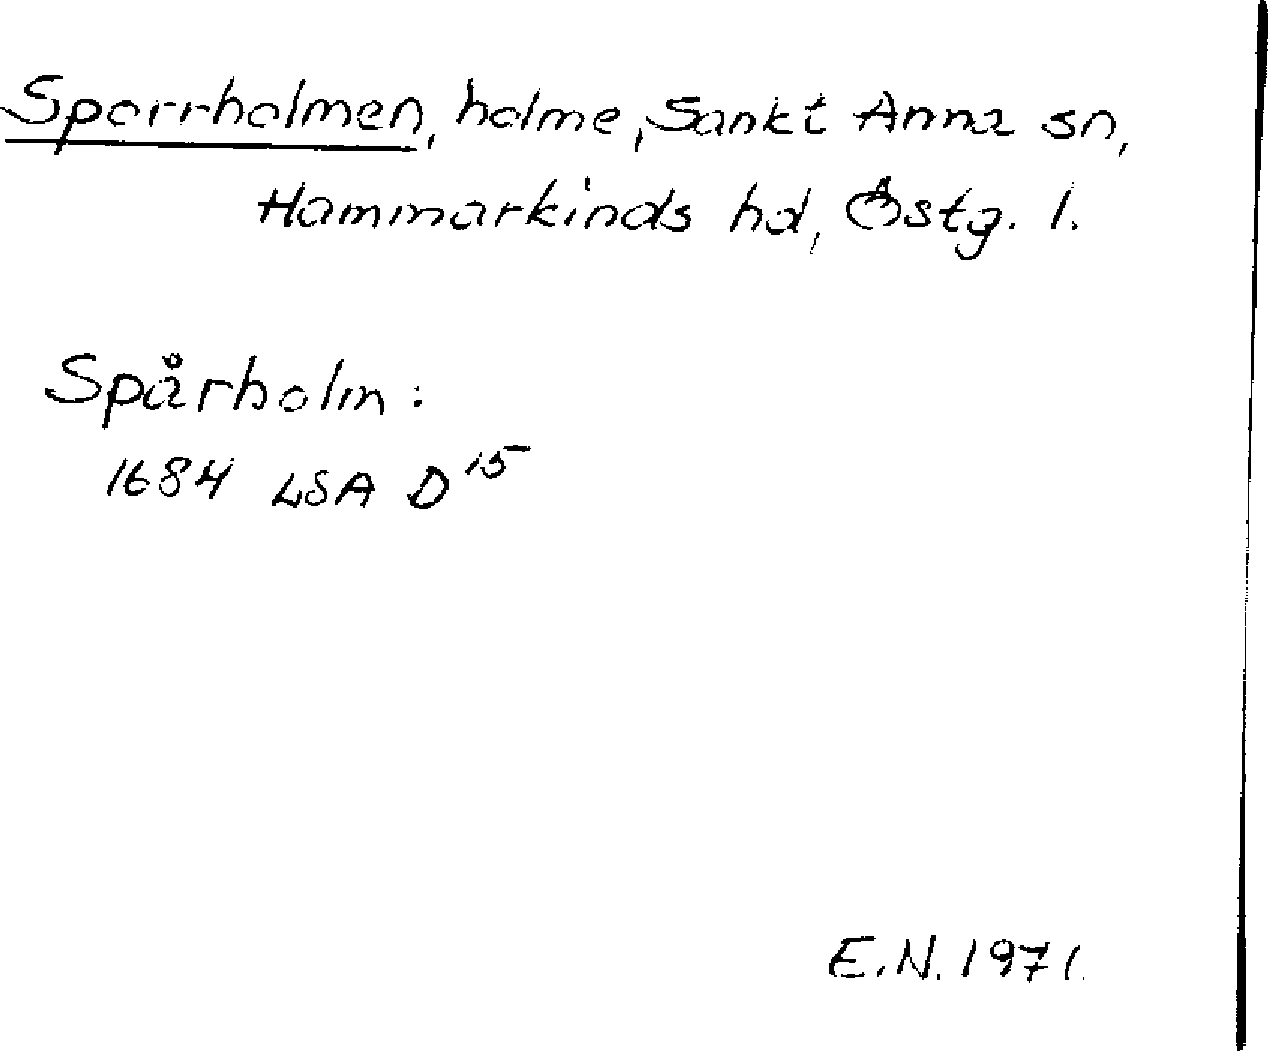 Sporrholmen, holme, Sankt Anna sn,
Hammarkinds hd, Östg. l.
Spårholm:
1684 LSA D 15
E.N. 1971